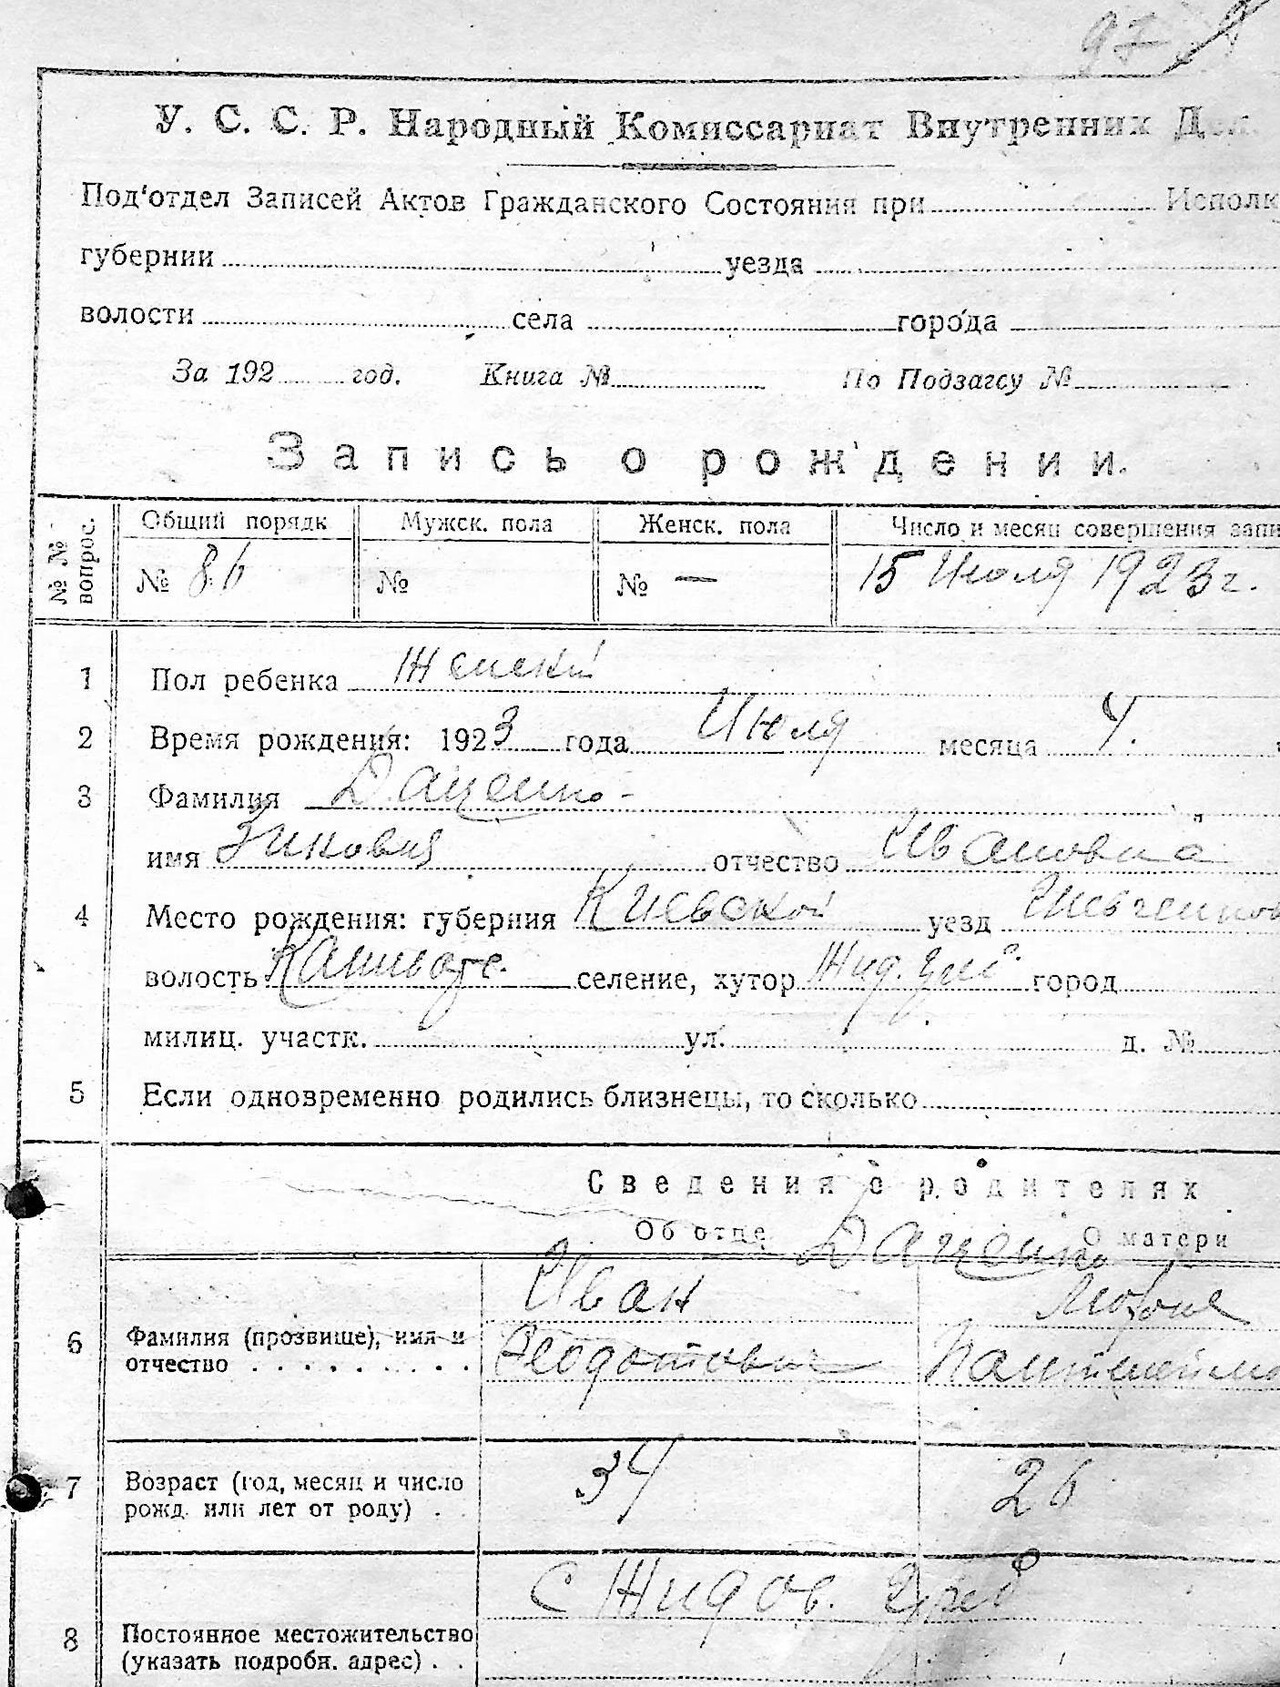 97
У. С. С. Р. Народный Комиссариат Внутренних Дел.
Под'отдел Записей Актов Гражданского Состояния при Исполк
губернии уезда
волости села города
За 192 год. Книга № По Подзагсу №
Запись о рождении.
№ № вопрос. Общий порядк Мужск. пола Женск. пола Число и месяц совершения запи
№ 86 № № — 15 Июля 1923 г.
1 Пол ребенка Женский
2 Время рождения: 1923 года Июля месяца 4.
3 Фамилия Даценко
имя Зиновия отчество Ивановна
4 Место рождения: губерния Киевской уезд Шевченков
волость селение, хутор Жид. город
милиц. участк. ул. д. №
5 Если одновременно родились близнецы, то сколько
Сведения о родителях
Об отце О матери
Даценко
Иван
6 Фамилия (прозвище), имя и
отчество Феодотович
7 Возраст (год, месяц и число
рожд. или лет от роду) 34 26
С Жидов.
8 Постоянное местожительство
(указать подробн. адрес)